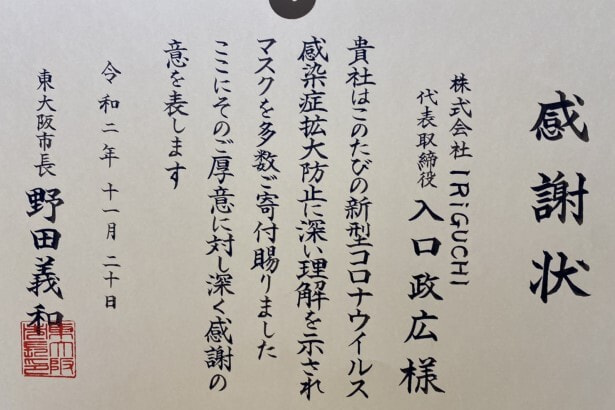 感謝状
株式会社 IRiGUCHI
代表取締役 入口政広様
貴社はこのたびの新型コロナウイルス
感染症拡大防止に深い理解を示され
マスクを多数ご寄付賜りました
ここにそのご厚意に対し深く感謝の
意を表します
令和二年十一月二十日
東大阪市長 野田義和